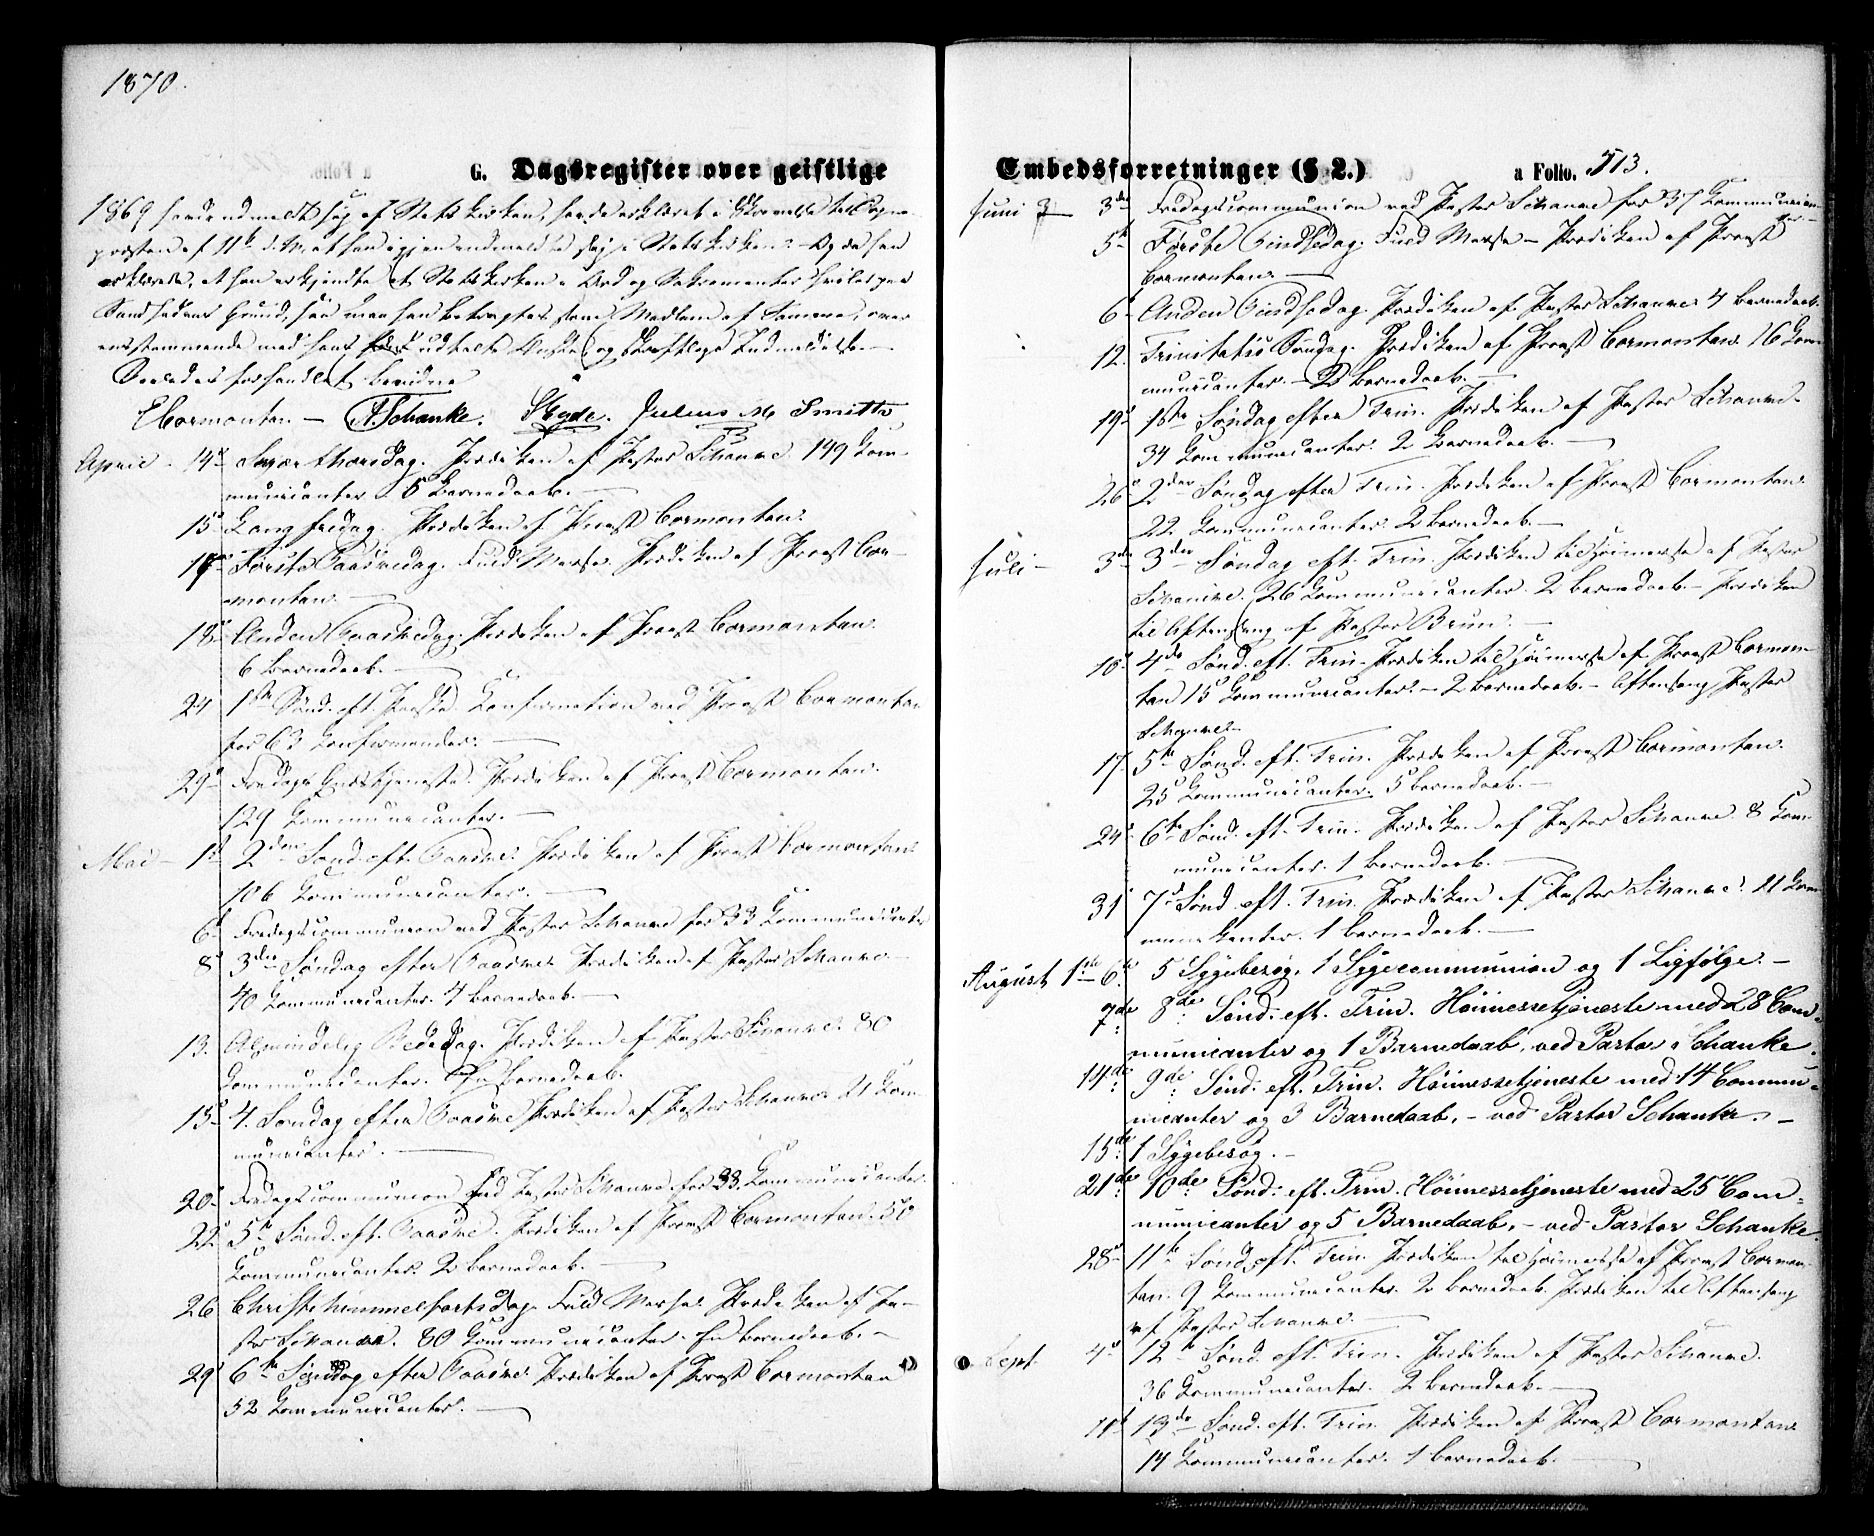 1870.
G. Dagsregister over geistlige
1869 havde udmeldt sig af Statskirken, havde erklæret i Skrivelse til Sogne-
præsten af 11te d. M. at han igjen indmeldte sig i Statskirken. - Og da han
erklærede, at han erkjendte at Statskirkens Ord og Sakramenter hviler paa
Sandhedens Grund, saa maa han betragtes som Medlem af Samme, over
ensstemmende med hans udtalte Ønske og skriftlige Indmeldelse. -
Saaledes forhandlet bevidne
E Cormontan - A. Schanke. Julius M Smith
April - 14de Skjærthorsdag. Prædiken af Pastor Schanke 149 Com-
municanter. 5 Barnedaab. -
15de Langfredag. Prædiken af Provst Cormontan.
17de Første Paaskedag. Fuld Messe. Prædiken af Provst Cor-
montan. -
18de Anden Paaskedag. Prædiken af Provst Cormontan.
6 Barnedaab. -
24 1ste Sønd. eft. Paaske. Confirmation ved Provst Cormontan
for 63 Confirmander. -
29de Fredags Gudstjeneste. Prædiken af Provst Cormontan.
129 Communicanter. -
Mai - 1ste 2den Sønd. eft. Paaske. Prædiken af Provst Cormontan
106 Communicanter. -
6te Fredagscommunion ved Pastor Schanke for 33 Communicanter
8de 3die Søndag efter Paaske. Prædiken af Pastor Schanke.
40 Communicanter. 4 Barnedaab. -
13. Almindelig Bededag. Prædiken af Pastor Schanke. 80
Communicanter. En Barnedaab.
15de 4. Søndag efter Paaske Prædiken af Pastor Schanke 21 Com-
municanter. -
20de Fredagscommunion ved Pastor Schanke for 33 Communicanter.
22de 5te Sønd. eft. Paaske. Prædiken af Provst Cormontan. 50
Communicanter. 2 Barnedaab. -
26 Christi himmelfartsdag. Fuld Messe. Prædiken af Pa-
stor Schanke. 80 Communicanter. En Barnedaab. -
29de 6te Søndag efter Paaske. Prædiken af Provst Cormontan
52 Communicanter. -
Embedsforretninger (§ 2.)
a Folio. 513.
Juni 3 - 3die Fredagscommunion ved Pastor Schanke for 37 Communican-
ter -
5te Første Pindsedag. Fuld Messe - Prædiken af Provst
Cormontan. -
6te Anden Pindsedag. Prædiken af Pastor Schanke 4 Barnedaab.
12. Trinitatis Søndag. Prædiken af Provst Cormontan 16 Com-
municanter. - 2 Barnedaab. -
19de 1ste Søndag efter Trin. Prædiken af Pastor Schanke.
34 Communicanter. 2 Barnedaab. -
26de 2den Søndag efter Trin. Prædiken af Provst Cormontan.
22 Communicanter. 2 Barnedaab. -
Juli - 3die 3die Søndag eft. Trin. Prædiken til Høimesse af Pastor
Schanke. 26 Communicanter. 2 Barnedaab. - Prædiken
til Aftensang af Pastor Brun. -
10de 4de Sønd. eft. Trin. Prædiken til Høimesse af Provst Cormon-
tan 15 Communicanter. - 2 Barnedaab. - Aftensang Pastor
Schanke.
17. 5te Sønd. eft. Trin. Prædiken af Provst Cormontan.
25 Communicanter. 5 Barnedaab. -
24de 6te Sønd. eft. Trin. Prædiken af Pastor Schanke 8 Com-
municanter. 1 Barnedaab. -
31 7de Sønd. eft. Trin. Prædiken af Pastor Schanke. 21 Com-
municanter. 1 Barnedaab. -
August 1ste - 6te 5 Sygebesøg, 1 Sygecommunion og 1 Ligfølge. -
7de 8de Sønd: eft. Trin. Høimessetjeneste med 28 Com-
municanter og 1 Barnedaab, ved Pastor Schanke.
14de 9de Sønd: eft. Trin. Høimessetjeneste med 14 Commu-
nicanter og 3 Barnedaab, - ved Pastor Schanke. -
15de 1 Sygebesøg. -
21de 10de Sønd: eft. Trin. Høimessetjeneste med 25 Com-
municanter og 5 Barnedaab, - ved Pastor Schanke.
28de 11te Sønd. eft. Trin Prædiken til Høimesse af Provst Cormon-
tan. 9 Communicanter. 2 Barnedaab. Prædiken til Aftensang
af Pastor Schanke. -
Sept 4de 12te Sønd. eft. Trin. Prædiken af Pastor Schanke.
36 Communicanter. 2 Barnedaab. -
11te 13de Sønd. eft. Trin. Prædiken af Provst Cormontan.
14 Communicanter. 1 Barnedaab. -